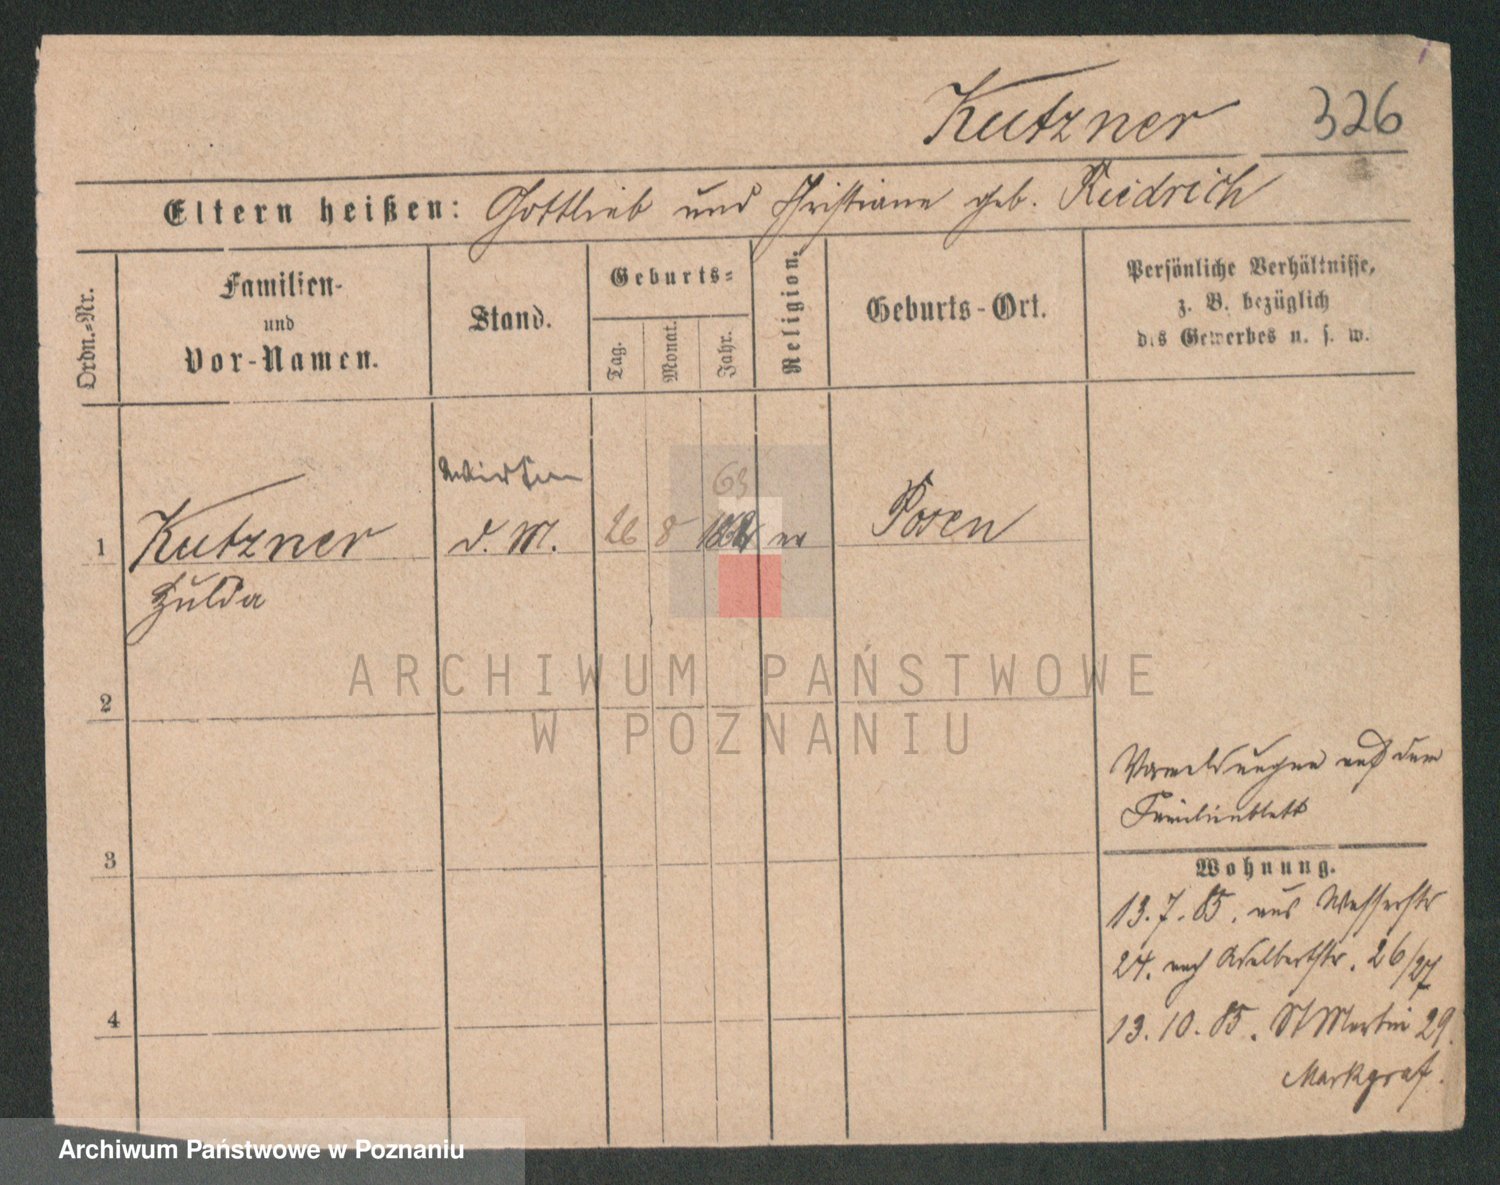 Kutzner 326
Eltern heißen: Gottlieb und Christiane geb. Riedrich
Ordn.-Nr.
Familien-
und
Vor-Namen.
Stand.
Geburts-
Tag.
Monat.
Jahr.
Religion.
Geburts-Ort.
Persönliche Verhältnisse,
z. B. bezüglich
des Gewerbes u. s. w.
63
1 Kutzner d. M. 26 8 186 ev Posen
Hulda
2
3
4
ARCHIWUM PAŃSTWOWE
W POZNANIU
auf dem
Familienblatt
Wohnung.
13.7.85. aus Wasserstr
24. nach Adalbertstr. 26/27
13.10.85. St Martin 29.
Markgraf.
Archiwum Państwowe w Poznaniu